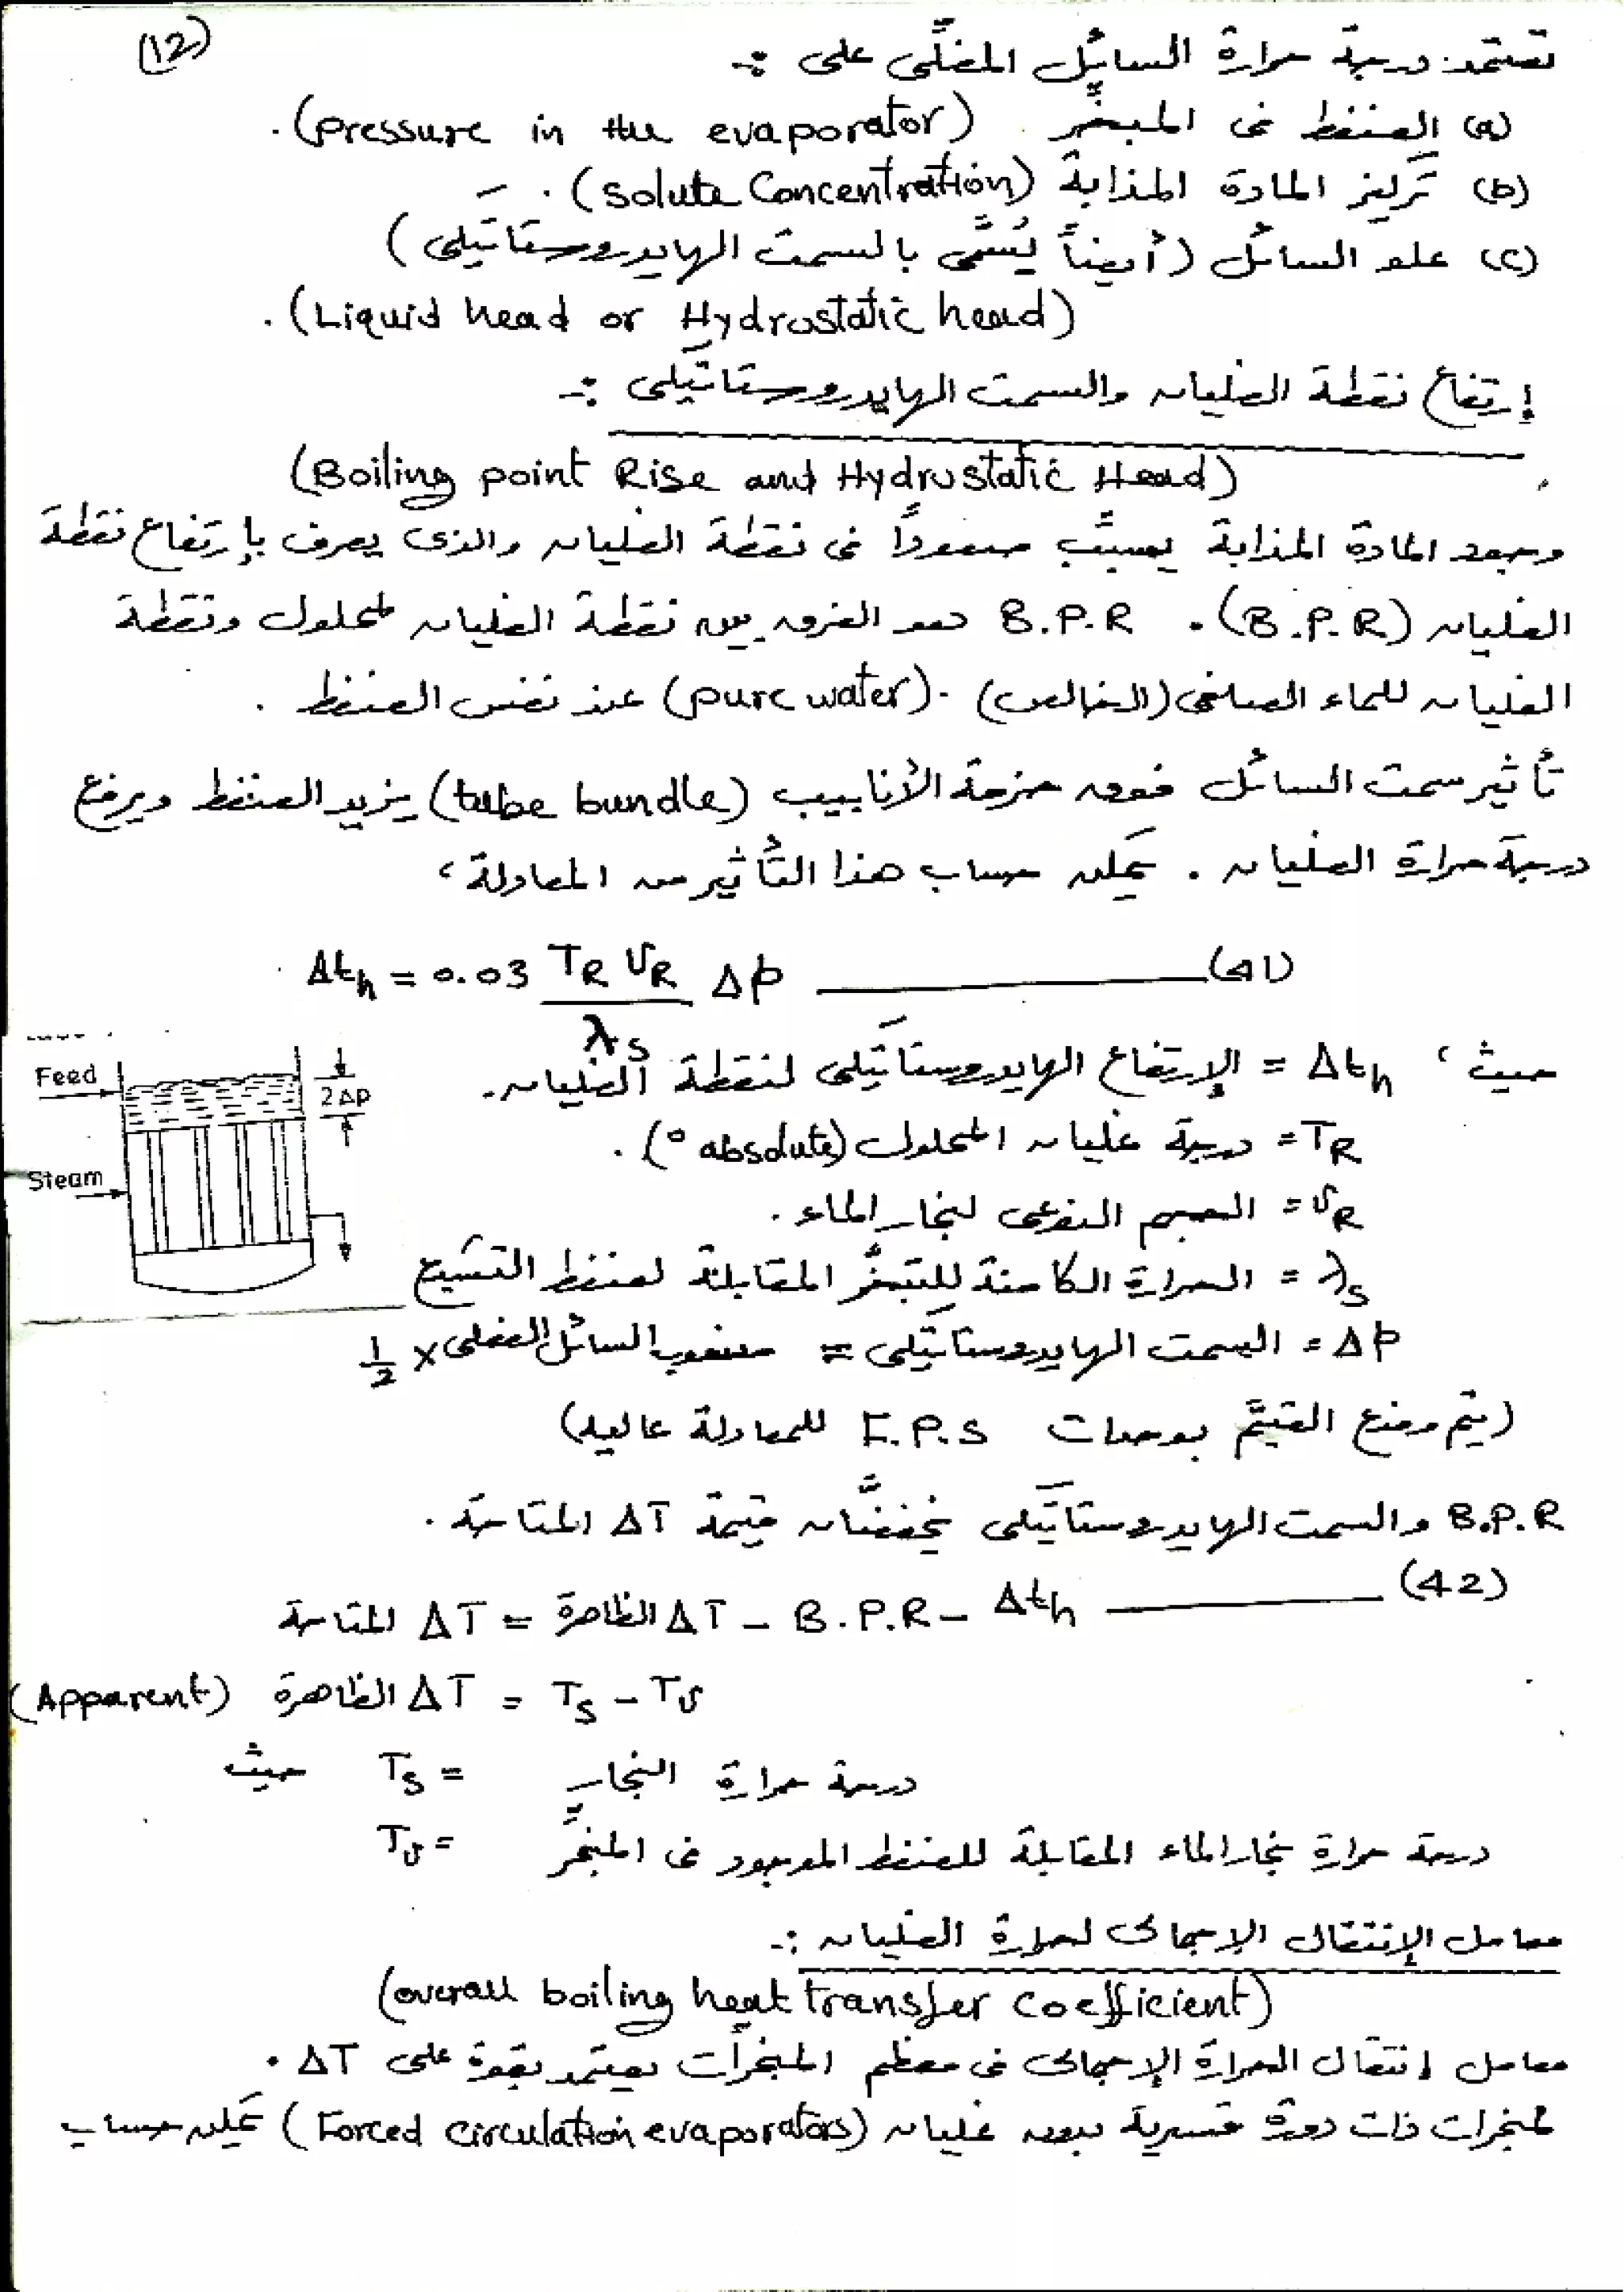 (12)
تعتمد درجة حرارة السائل المغلّى على :-
(a) الضغط فى المبخّر (pressure in the evaporator).
(b) تركيز المادة المذابة (Solute Concentration).
(c) علو السائل (أيضاً يُسمَّى بالسمت الهايدروستاتيكى)
(Liquid head or Hydrostatic head).
إرتفاع نقطة الغليان والسمت الهايدروستاتيكى :-
(Boiling point Rise and Hydrostatic Head)
وجود المادة المذابة يسبِّب صعوداً فى نقطة الغليان والذى يعرف بإرتفاع نقطة
الغليان (B.P.R). B.P.R هو الفرق بين نقطة الغليان لمحلول ونقطة
الغليان للماء الصافى (الخالص) (pure water) عند نفس الضغط.
تأثير سمت السائل فوق حزمة الأنابيب (tube bundle) يزيد الضغط ويرفع
درجة حرارة الغليان. يمكن حساب هذا التأثير من المعادلة،
Δth = 0.03 TR vR / λs Δp ——— (41)
Feed
2Δp
Steam
حيث، Δth = الإرتفاع الهايدروستاتيكى لنقطة الغليان.
TR = درجة غليان المحلول (° absolute).
vR = الحجم النوعى لبخار الماء.
λs = الحرارة الكامنة للتبخُّر المقابلة لضغط التشبع
Δp = السمت الهايدروستاتيكى = منسوب السائل الفعلى × 1/2
(يتم وضع القيَّم بوحدات F.P.S للمعادلة عاليه)
B.P.R والسمت الهايدروستاتيكى يخفضَّان قيمة ΔT المتاحة.
ΔT المتاحة = ΔT الظاهرة - B.P.R - Δth ——— (42)
(Apparent) ΔT الظاهرة = Ts - Tv
حيث Ts = درجة حرارة البخار
Tv = درجة حرارة بخار الماء المقابلة للضغط الموجود فى المبخِّر
معامل الإنتقال الإجمالى لحرارة الغليان :-
(overall boiling heat transfer coefficient)
معامل إنتقال الحرارة الإجمالى فى معظم المبخرات يعتمد بقوة على ΔT.
لمبخرات ذات دورة قسرية بدون غليان (Forced circulation evaporators) يمكن حساب